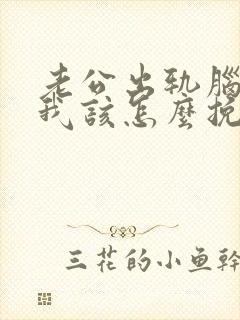 老公出轨腦
我該怎麼挽
三花的小鱼幹